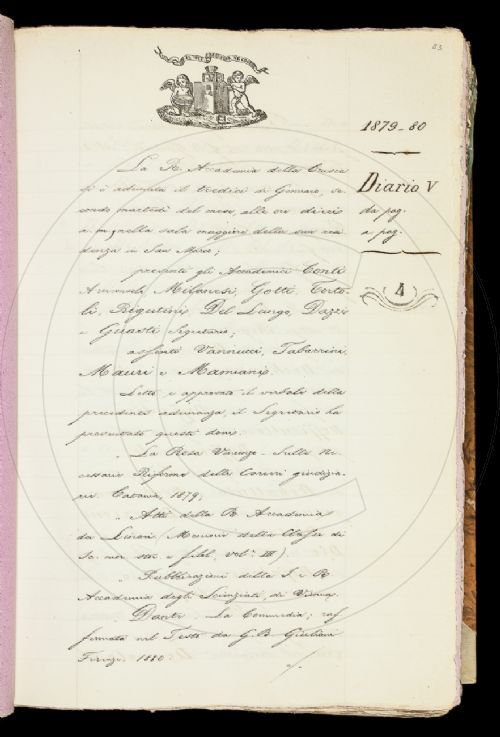 83
1879-80
Diario V
da pag.
a pag.
4
La R. Accademia della Crusca
si è adunata il tredici di Gennaio, se
condo martedì del mese, alle ore dieci
a. m. nella sala maggiore della sua resi
denza in San Marco;
presenti gli Accademici Conti
Arciconsolo, Milanesi, Gotti, Torto-
li, Rigutini, Del Lungo, Dazzi
e Guasti Segretario;
assenti Vannucci, Tabarrini,
Mauri e Mamiani.
Letto e approvato il verbale della
precedente adunanza, il Segretario ha
presentato questi doni.
La Rosa Vincenzo - Sulla Ne
cessaria Riforma delle Corti giudizia
rie. Catania, 1879;
Atti della R. Accademia
dei Lincei (Memorie della Classe di
Sc. mor. stor. e filol. vol. III).
Pubblicazioni della I. e R.
Accademia degli Scienziati, di Vienna.
Dante, La Commedia; raf
fermata nel Testo da G.B. Giuliani
Firenze. 1880